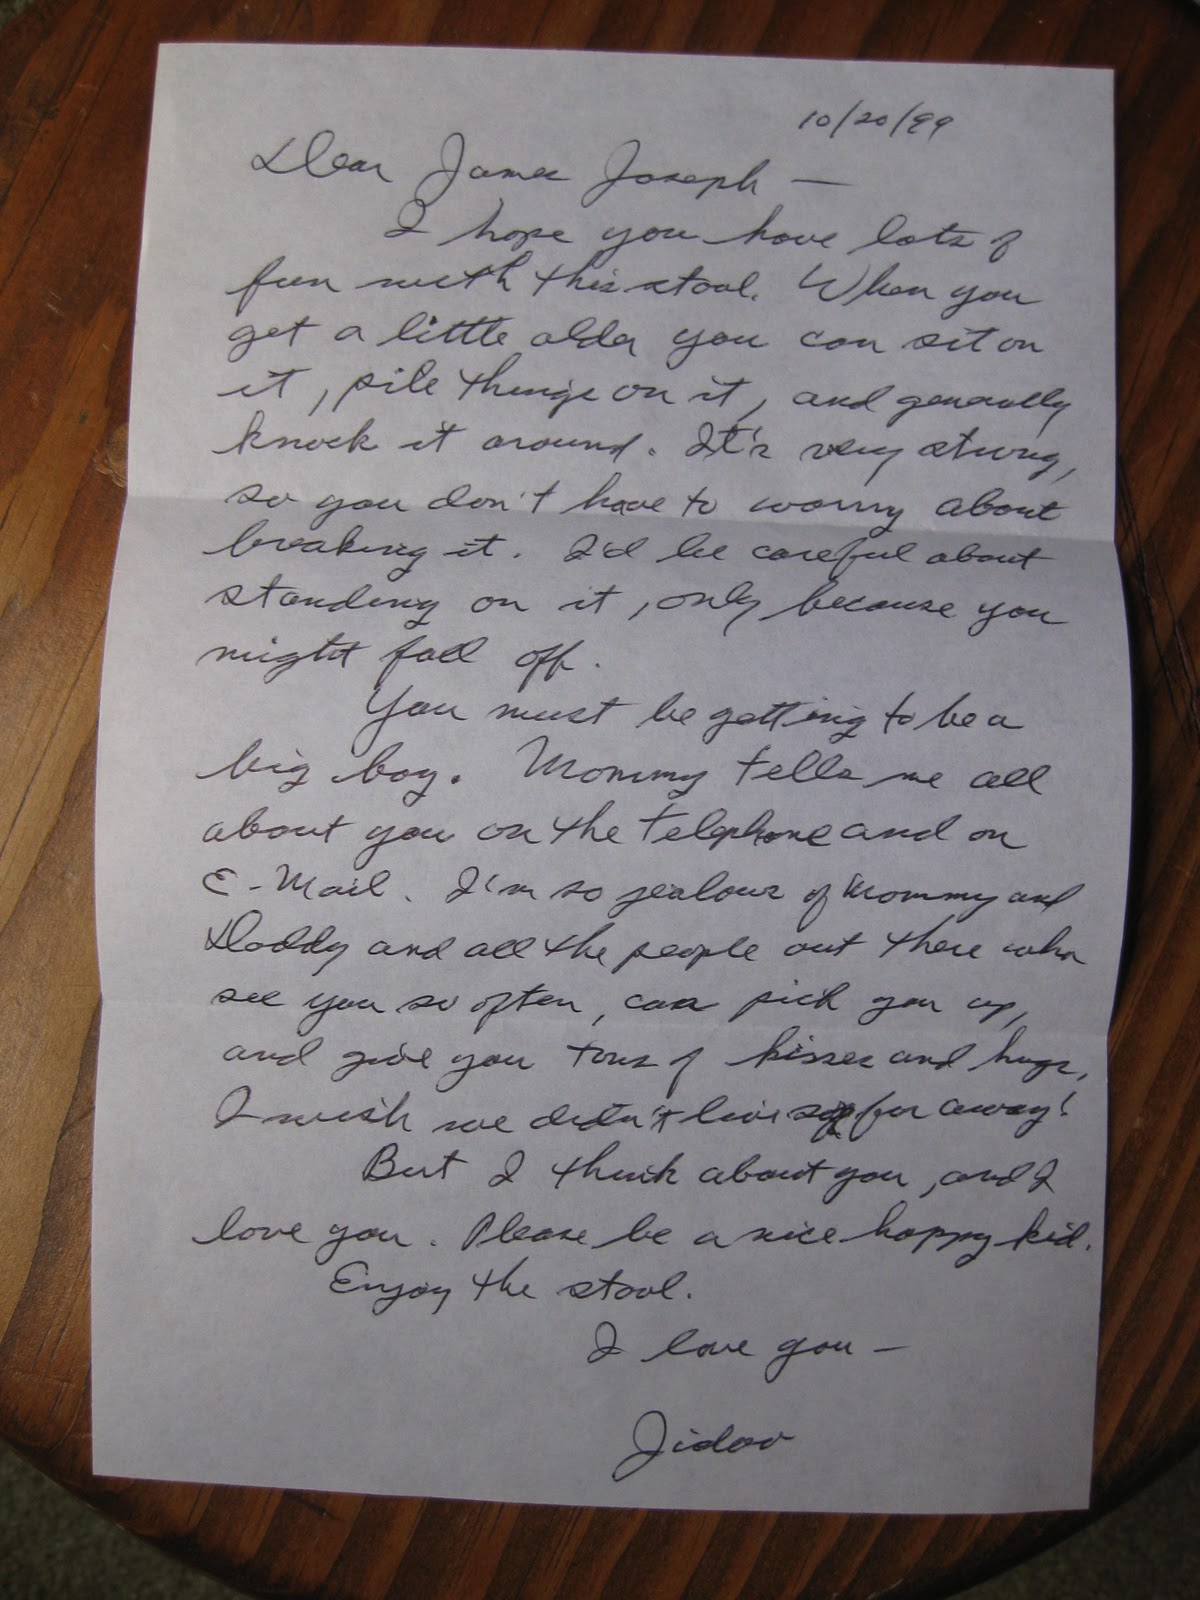 10/20/99
Dear James Joseph —
I hope you have lots of
fun with this stool. When you
get a little older you can sit on
it, pile things on it, and generally
knock it around. It's very strong,
so you don't have to worry about
breaking it. I'd be careful about
standing on it, only because you
might fall off.
You must be getting to be a
big boy. Mommy tells me all
about you on the telephone and on
E-Mail. I'm so jealous of Mommy and
Daddy and all the people out there who
see you so often, can pick you up,
and give you tons of kisses and hugs,
I wish we didn't live so far away!
But I think about you, and I
love you. Please be a nice happy kid.
Enjoy the stool.
I love you —
Jidoo